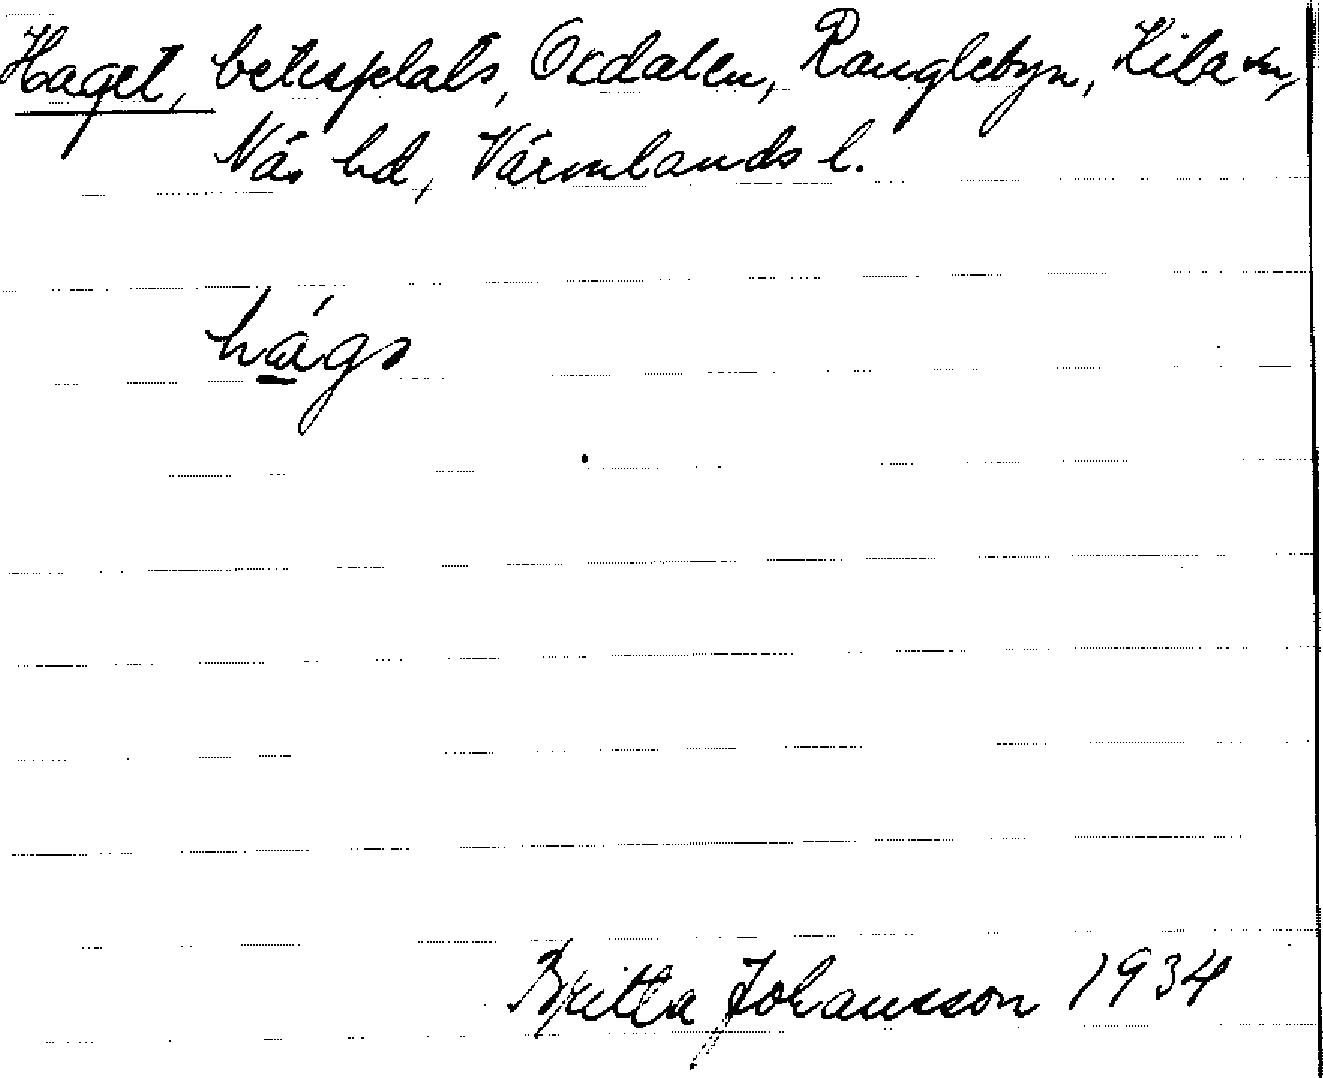 Haget, betesplats, Oxdalen, Ranglebyn, Kila sn,
Näs hd, Värmlands l.
hágə
Britta Johansson 1934